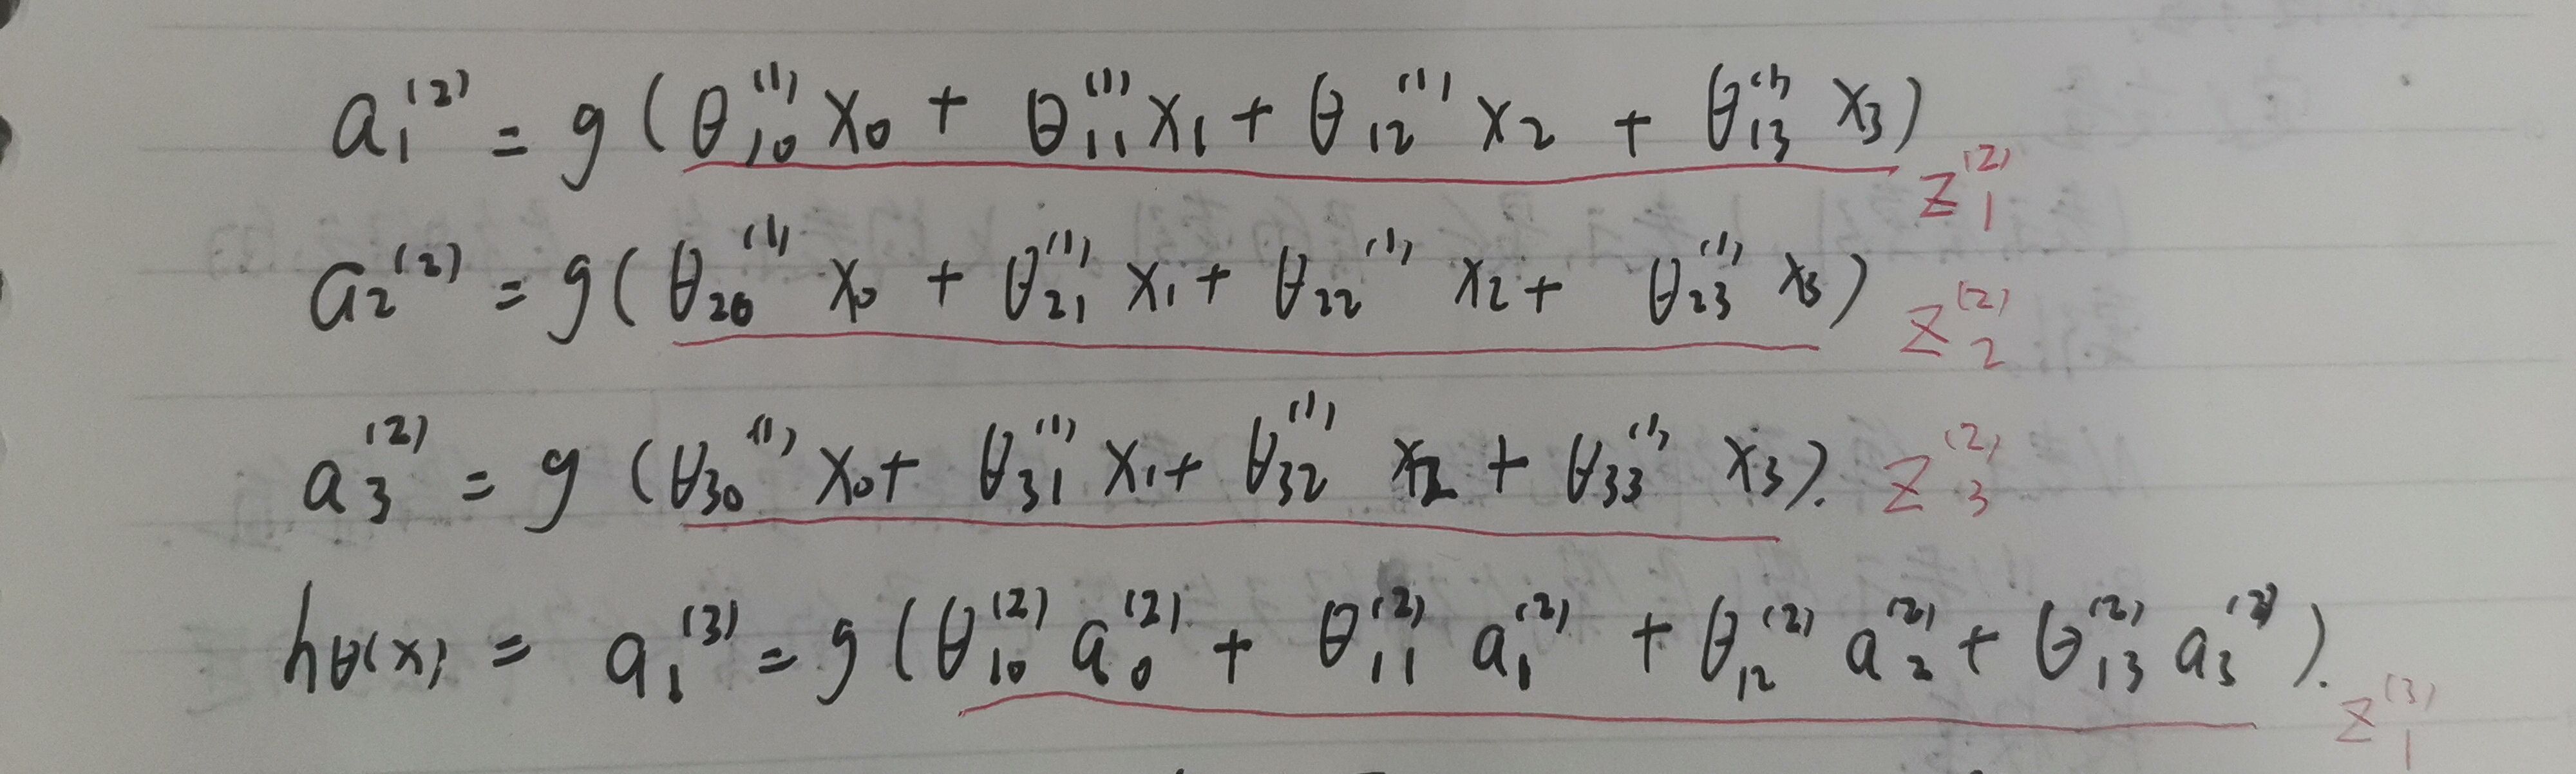 a₁⁽²⁾ = g(θ₁₀⁽¹⁾ x₀ + θ₁₁⁽¹⁾ x₁ + θ₁₂⁽¹⁾ x₂ + θ₁₃⁽¹⁾ x₃) z₁⁽²⁾
a₂⁽²⁾ = g(θ₂₀⁽¹⁾ x₀ + θ₂₁⁽¹⁾ x₁ + θ₂₂⁽¹⁾ x₂ + θ₂₃⁽¹⁾ x₃) z₂⁽²⁾
a₃⁽²⁾ = g(θ₃₀⁽¹⁾ x₀ + θ₃₁⁽¹⁾ x₁ + θ₃₂⁽¹⁾ x₂ + θ₃₃⁽¹⁾ x₃). z₃⁽²⁾
hθ(x) = a₁⁽³⁾ = g(θ₁₀⁽²⁾ a₀⁽²⁾ + θ₁₁⁽²⁾ a₁⁽²⁾ + θ₁₂⁽²⁾ a₂⁽²⁾ + θ₁₃⁽²⁾ a₃⁽²⁾). z₁⁽³⁾